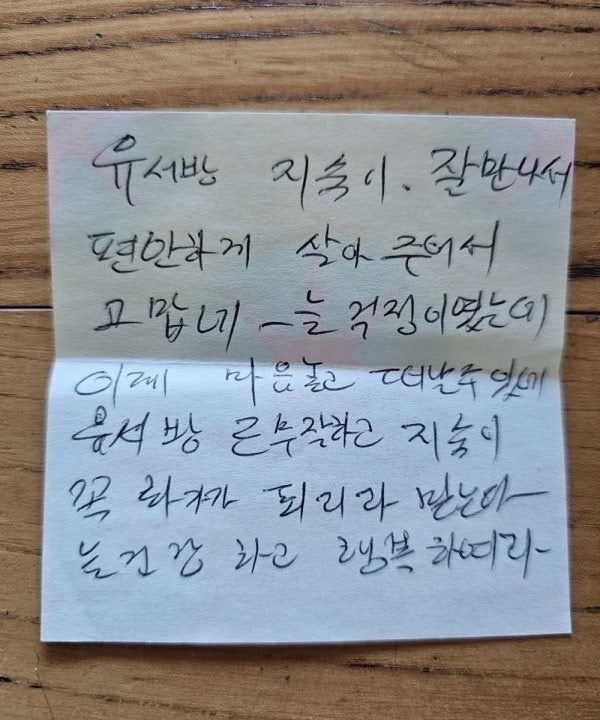 유서방 지숙이. 잘만나서
편안하게 살아 주어서
고맙네 늘 걱정이였는데
이제 마음놓고 떠날수 있네
유서방 근무잘하고 지숙이
꼭 화가가 되리라 믿는다
늘건강 하고 행복하여라